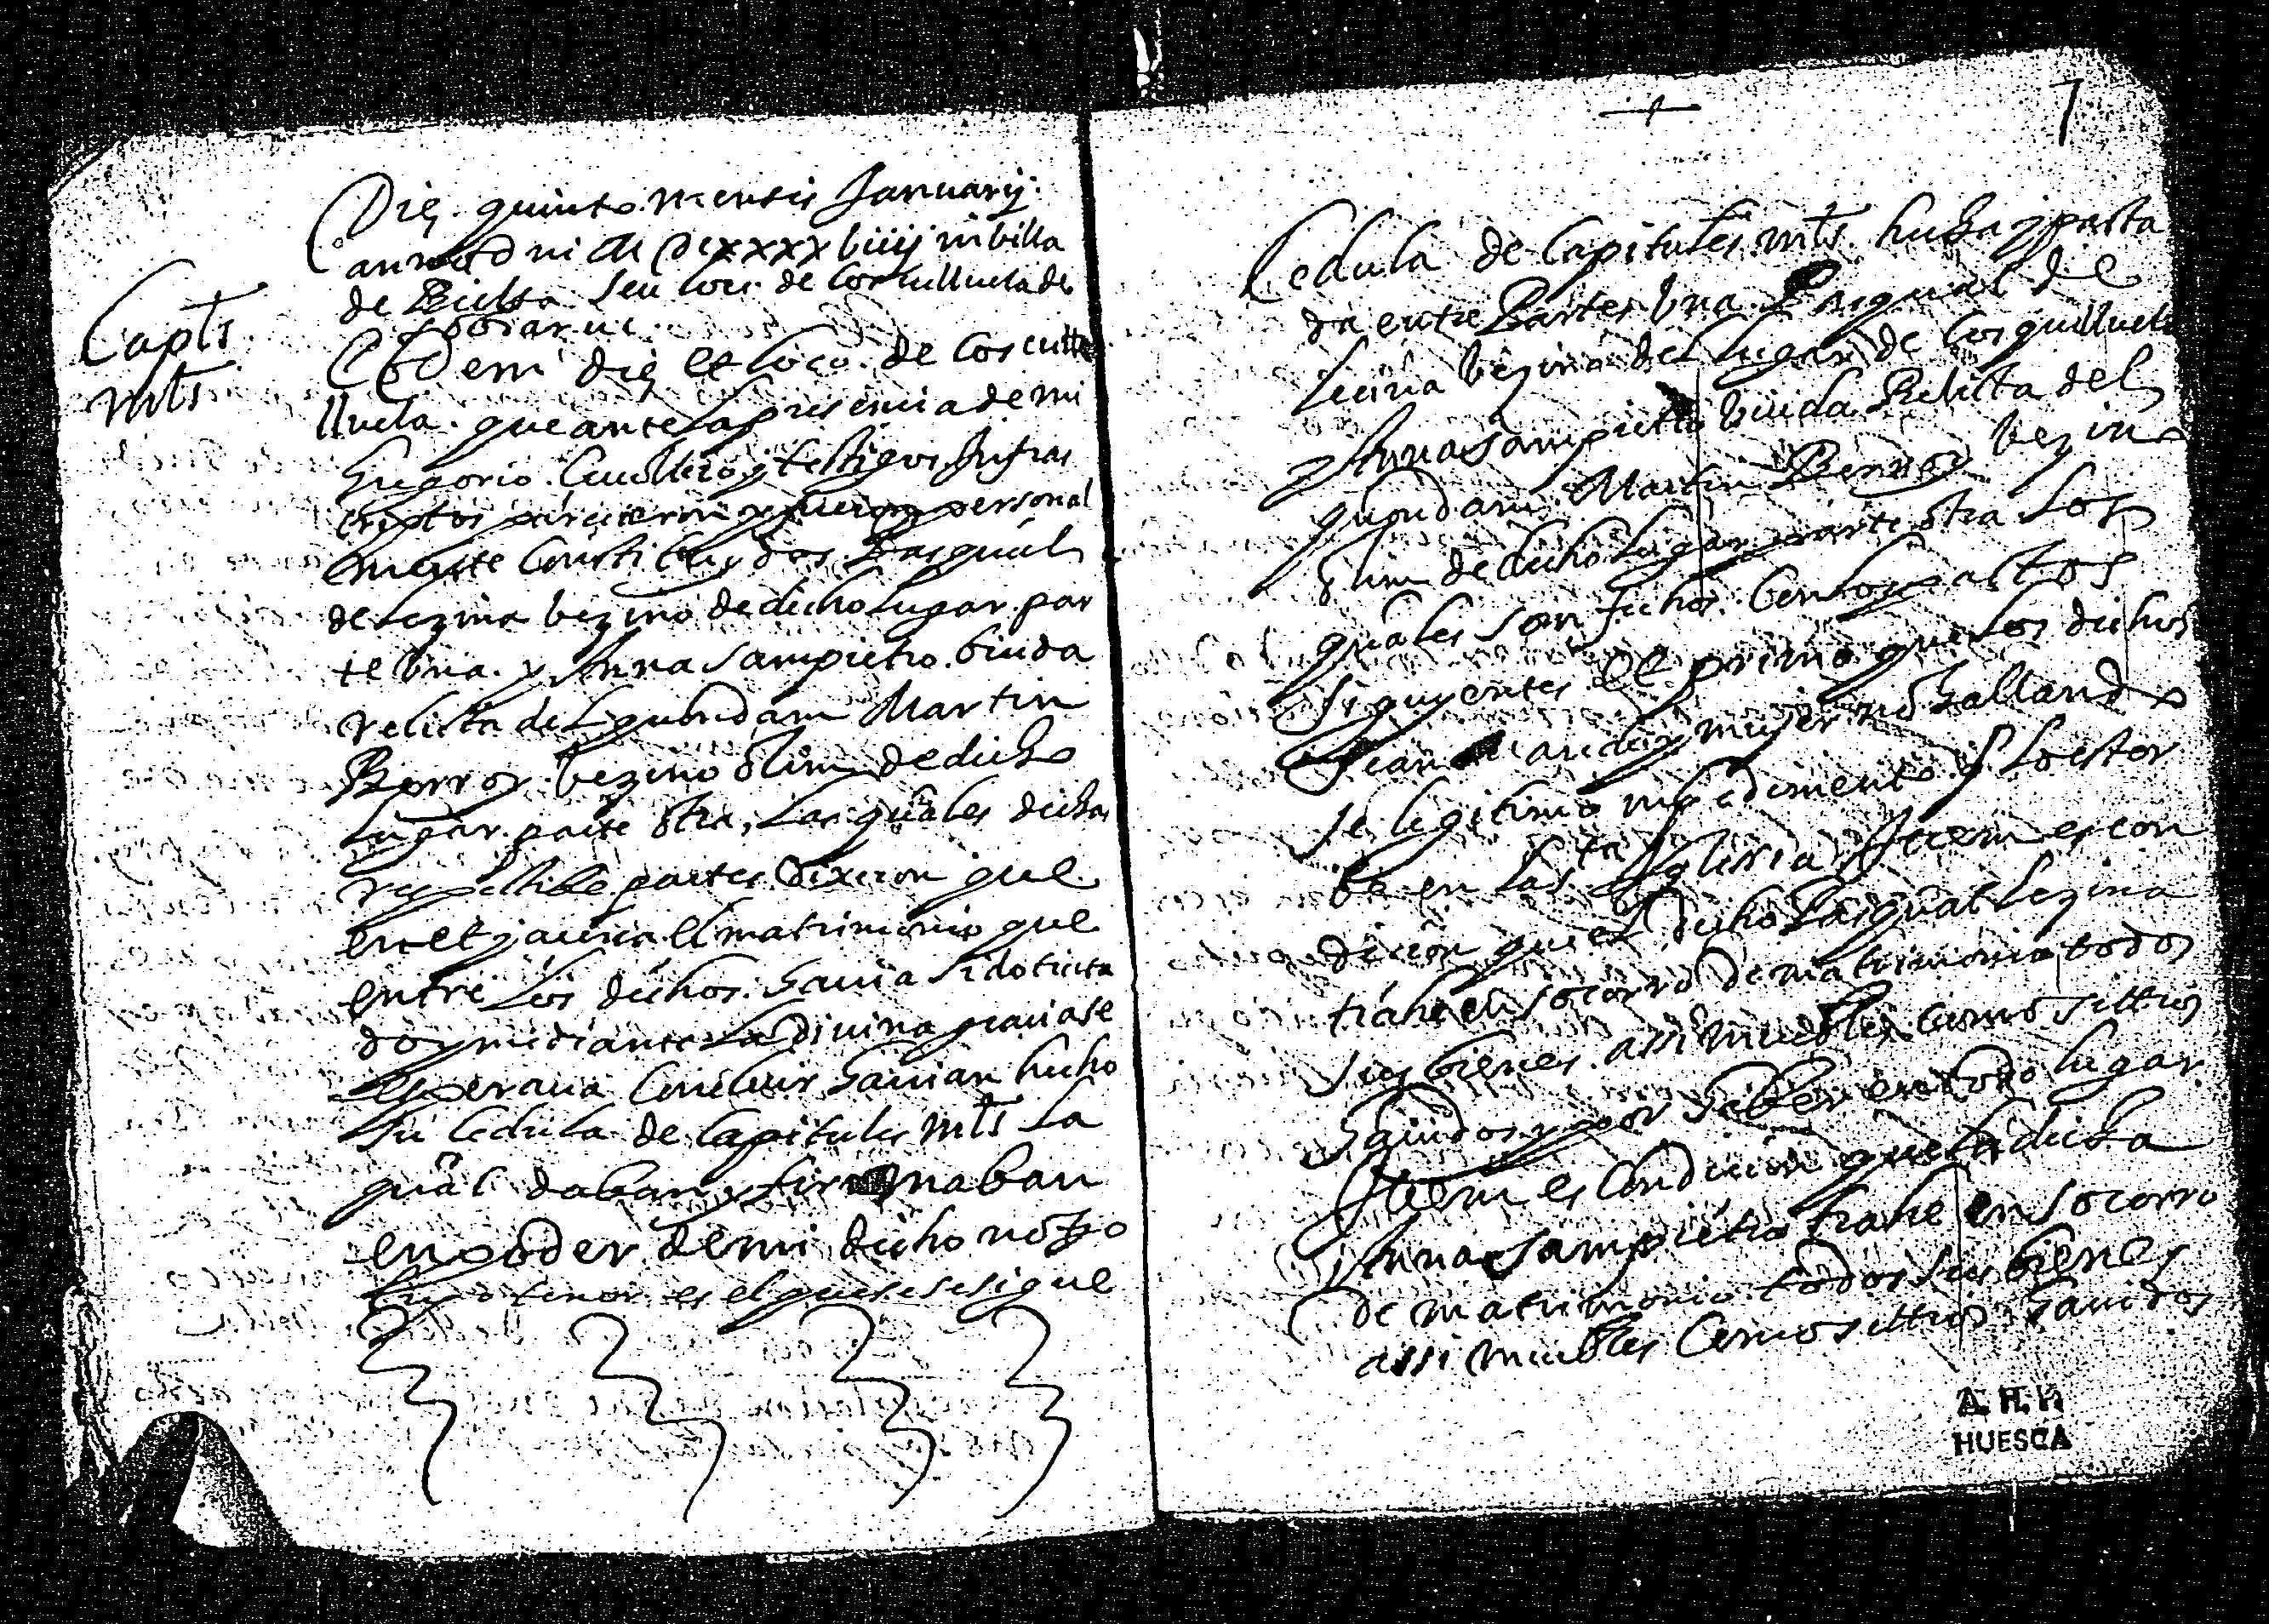 Capts
mts
Die quinto mensis Januarij
anno dni M DCxxxx biiij in billa
de Bielsa seu loci de Cosculluela de
Sobrarui
Eodem die et loco de Coscu
lluela que ante la presencia de mi
Gregorio y testigos Infras
criptos parecieron y fueron personal
mente Constituydos Pasqual
de Lezina bezino de dicho lugar par
te bna y Anna Sampietro biuda
relicta del quondam Martin
Borroy bezino olim de dicho
lugar parte otra, Las quales dichas
respectibe partes Dixeron que
en et jaucia el matrimonio que
entre los dichos hauia sido tracta
do y mediante la diuina gracia se
esperaua Concluir hauian hecho
su Cedula de Capitules mts La
qual daban y firmaban
en poder de mi dicho notro
Cuyo tenor es el que se sesigue
7
Cedula de Capitules mts hecha y pacta
da entre Partes bna Pasqual de
Lecina bezino del lugar de Cosquilluela
y Anna Sampietro biuda Relicta del
quondam Martin Borroy bezino
olim de dicho lugar parte otra Los
quales son fechos Con los pactos
siguyentes Et primo que los dichos
sean marido y mujer no hallando
se legitimo impedimento y lo estor
be en la sta Yglesia Item es con
dicion que el dicho Pasqual Lezina
trahe en socorro de matrimonio todos
sus bienes assi muebles Como sittios
hauidos y por haber en todo lugar
Item es Condicion que la dicha
Anna Sampietro trahe en socorro
de matrimonio todos sus bienes
assi muebles Como sittios hauidos
A. H. P.
HUESCA